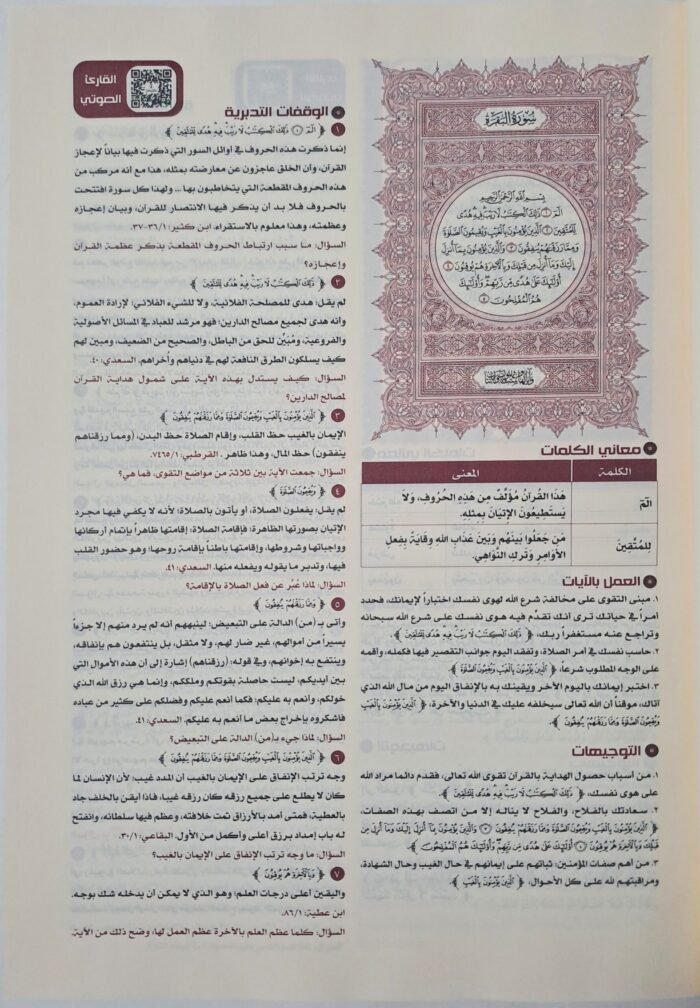 سُورَةُ البَقَرَةِ
بِسْمِ اللَّهِ الرَّحْمَٰنِ الرَّحِيمِ
الٓمٓ ١ ذَٰلِكَ الْكِتَٰبُ لَا رَيْبَ فِيهِ هُدًى
لِّلْمُتَّقِينَ ٢ الَّذِينَ يُؤْمِنُونَ بِالْغَيْبِ وَيُقِيمُونَ الصَّلَوٰةَ
وَمِمَّا رَزَقْنَٰهُمْ يُنفِقُونَ ٣ وَالَّذِينَ يُؤْمِنُونَ بِمَا أُنزِلَ
إِلَيْكَ وَمَا أُنزِلَ مِن قَبْلِكَ وَبِالْآخِرَةِ هُمْ يُوقِنُونَ ٤
أُوْلَٰئِكَ عَلَىٰ هُدًى مِّن رَّبِّهِمْ وَأُوْلَٰئِكَ
هُمُ الْمُفْلِحُونَ ٥
معاني الكلمات
الكلمة المعنى
الٓمٓ هَذَا القُرآنُ مُؤَلَّفٌ مِن هَذِهِ الحُرُوفِ، وَلَا
يَستَطِيعُونَ الإِتيَانَ بِمِثلِهِ.
لِلمُتَّقِينَ مَن جَعَلُوا بَينَهُم وَبَينَ عَذَابِ اللهِ وِقَايَةً بِفِعلِ
الأَوَامِرِ وَتَركِ النَّوَاهِي.
العمل بالآيات
١. مبنى التقوى على مخالفة شرع الله لهوى نفسك اختباراً لإيمانك، فحدد
أمراً في حياتك ترى أنك تقدّم فيه هوى نفسك على شرع الله سبحانه
وتراجع عنه مستغفراً ربك، ﴿ ذَٰلِكَ الْكِتَٰبُ لَا رَيْبَ فِيهِ هُدًى لِّلْمُتَّقِينَ ﴾.
٢. حاسب نفسك في أمر الصلاة، وتفقد اليوم جوانب التقصير فيها فكمله، وأقمه
على الوجه المطلوب شرعاً، ﴿ الَّذِينَ يُؤْمِنُونَ بِالْغَيْبِ وَيُقِيمُونَ الصَّلَوٰةَ وَمِمَّا رَزَقْنَٰهُمْ يُنفِقُونَ ﴾.
٣. اختبر إيمانك باليوم الآخر ويقينك به بالإنفاق اليوم من مال الله الذي
آتاك، موقناً أن الله تعالى سيخلفه عليك في الدنيا والآخرة، ﴿ الَّذِينَ يُؤْمِنُونَ بِالْغَيْبِ
وَيُقِيمُونَ الصَّلَوٰةَ وَمِمَّا رَزَقْنَٰهُمْ يُنفِقُونَ ﴾.
التوجيهات
١. من أسباب حصول الهداية بالقرآن تقوى الله تعالى، فقدم دائما مراد الله
على هوى نفسك، ﴿ ذَٰلِكَ الْكِتَٰبُ لَا رَيْبَ فِيهِ هُدًى لِّلْمُتَّقِينَ ﴾.
٢. سعادتك بالفلاح، والفلاح لا يناله إلا من اتصف بهذه الصفات،
﴿ الَّذِينَ يُؤْمِنُونَ بِالْغَيْبِ وَيُقِيمُونَ الصَّلَوٰةَ وَمِمَّا رَزَقْنَٰهُمْ يُنفِقُونَ ٣ وَالَّذِينَ يُؤْمِنُونَ بِمَا أُنزِلَ إِلَيْكَ وَمَا أُنزِلَ مِن
قَبْلِكَ وَبِالْآخِرَةِ هُمْ يُوقِنُونَ ٤ أُوْلَٰئِكَ عَلَىٰ هُدًى مِّن رَّبِّهِمْ وَأُوْلَٰئِكَ هُمُ الْمُفْلِحُونَ ﴾.
٣. من أهم صفات المؤمنين: ثباتهم على إيمانهم في حال الغيب وحال الشهادة،
ومراقبتهم لله على كل الأحوال، ﴿ الَّذِينَ يُؤْمِنُونَ بِالْغَيْبِ ﴾.
القارئ
الصوتي
الوقفات التدبرية
١ ﴿ الٓمٓ ١ ذَٰلِكَ الْكِتَٰبُ لَا رَيْبَ فِيهِ هُدًى لِّلْمُتَّقِينَ ﴾
إنما ذكرت هذه الحروف في أوائل السور التي ذكرت فيها بياناً لإعجاز
القرآن، وأن الخلق عاجزون عن معارضته بمثله، هذا مع أنه مركب من
هذه الحروف المقطعة التي يتخاطبون بها ... ولهذا كل سورة افتتحت
بالحروف فلا بد أن يذكر فيها الانتصار للقرآن، وبيان إعجازه
وعظمته، وهذا معلوم بالاستقراء. ابن كثير: ٣٦/١-٣٧.
السؤال: ما سبب ارتباط الحروف المقطعة بذكر عظمة القرآن
وإعجازه؟
٢ ﴿ ذَٰلِكَ الْكِتَٰبُ لَا رَيْبَ فِيهِ هُدًى لِّلْمُتَّقِينَ ﴾
لم يقل: هدى للمصلحة الفلانية، ولا للشيء الفلاني؛ لإرادة العموم،
وأنه هدى لجميع مصالح الدارين؛ فهو مرشد للعباد في المسائل الأصولية
والفروعية، ومُبَيِّن للحق من الباطل، والصحيح من الضعيف، ومبين لهم
كيف يسلكون الطرق النافعة لهم في دنياهم وأخراهم. السعدي: ٤٠.
السؤال: كيف يستدل بهذه الآية على شمول هداية القرآن
لمصالح الدارين؟
٣ ﴿ الَّذِينَ يُؤْمِنُونَ بِالْغَيْبِ وَيُقِيمُونَ الصَّلَوٰةَ وَمِمَّا رَزَقْنَٰهُمْ يُنفِقُونَ ﴾
الإيمان بالغيب حظ القلب، وإقام الصلاة حظ البدن، (ومما رزقناهم
ينفقون) حظ المال، وهذا ظاهر. القرطبي: ٧٤٦٥/١.
السؤال: جمعت الآية بين ثلاثة من مواضع التقوى، فما هي؟
٤ ﴿ وَيُقِيمُونَ الصَّلَوٰةَ ﴾
لم يقل: يفعلون الصلاة، أو يأتون بالصلاة؛ لأنه لا يكفي فيها مجرد
الإتيان بصورتها الظاهرة؛ فإقامة الصلاة، إقامتها ظاهراً بإتمام أركانها
وواجباتها وشروطها، وإقامتها باطناً بإقامة روحها؛ وهو حضور القلب
فيها، وتدبر ما يقوله ويفعله منها. السعدي: ٤١.
السؤال: لماذا عُبِّر عن فعل الصلاة بالإقامة؟
٥ ﴿ وَمِمَّا رَزَقْنَٰهُمْ يُنفِقُونَ ﴾
وأتى بـ (من) الدالة على التبعيض؛ لينبههم أنه لم يرد منهم إلا جزءاً
يسيراً من أموالهم، غير ضار لهم، ولا مثقل، بل ينتفعون هم بإنفاقه،
وينتفع به إخوانهم، وفي قوله: (رزقناهم) إشارة إلى أن هذه الأموال التي
بين أيديكم، ليست حاصلة بقوتكم وملككم، وإنما هي رزق الله الذي
خولكم، وأنعم به عليكم؛ فكما أنعم عليكم وفضلكم على كثير من عباده
فاشكروه بإخراج بعض ما أنعم به عليكم. السعدي: ٤١.
السؤال: لماذا جيء بـ(من) الدالة على التبعيض؟
٦ ﴿ الَّذِينَ يُؤْمِنُونَ بِالْغَيْبِ وَيُقِيمُونَ الصَّلَوٰةَ وَمِمَّا رَزَقْنَٰهُمْ يُنفِقُونَ ﴾
وجه ترتب الإنفاق على الإيمان بالغيب أن المدد غيب؛ لأن الإنسان لما
كان لا يطلع على جميع رزقه كان رزقه غيبا، فإذا أيقن بالخلف جاد
بالعطية، فمتى أمد بالأرزاق تمت خلافته، وعظم فيها سلطانه، وانفتح
له باب إمداد برزق أعلى وأكمل من الأول. البقاعي: ٣٠/١.
السؤال: ما وجه ترتب الإنفاق على الإيمان بالغيب؟
٧ ﴿ وَبِالْآخِرَةِ هُمْ يُوقِنُونَ ﴾
واليقين أعلى درجات العلم؛ وهو الذي لا يمكن أن يدخله شك بوجه.
ابن عطية: ٨٦/١.
السؤال: كلما عظم العلم بالآخرة عظم العمل لها، وضح ذلك من الآية.